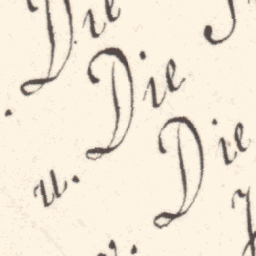 Die
u. Die
u. Die